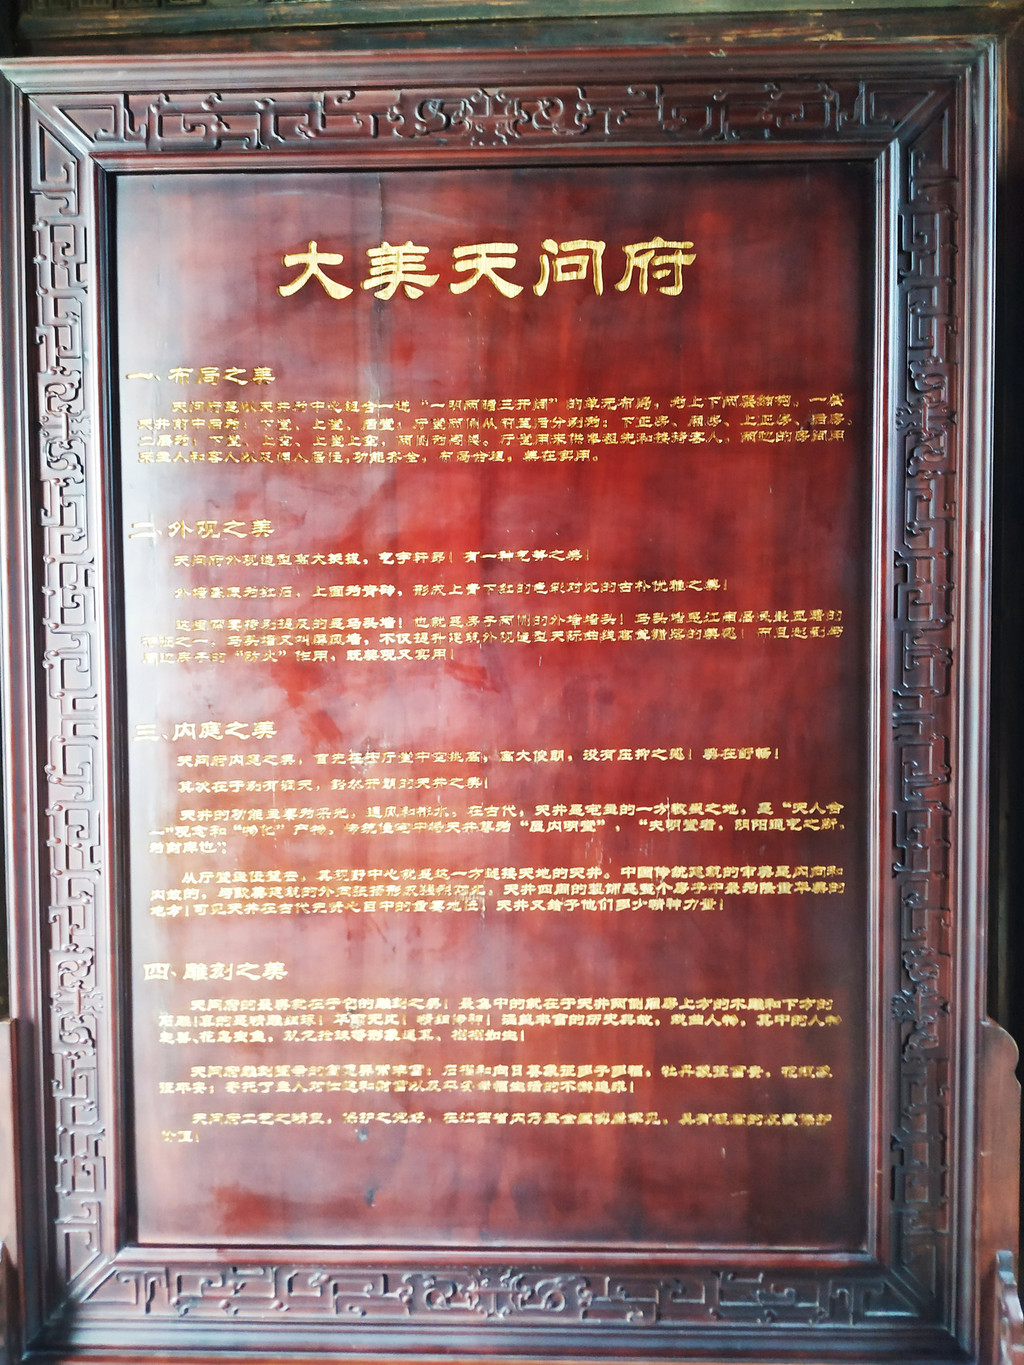 大美天问府
一、布局之美
天问府是以天井为中心组合一进“一明两暗三开间”的单元布局，为上下两层结构。一层
天井前中后为：下堂、上堂、后堂；厅堂两侧从前至后分别为：下正房、厢房、上正房、后房。
二层为：下堂、上堂上空，两侧为阁楼。厅堂用来供奉祖先和接待客人，两边的房间用
来主人和客人以及佣人居住，功能齐全，布局合理，美在实用。
二、外观之美
天问府外观造型高大挺拔，气宇轩昂！有一种气势之美！
外墙基座为红石、上面为青砖，形成上青下红的色彩对比的古朴优雅之美！
这里需要特别提及的是马头墙！也就是房子两侧的外墙墙头！马头墙是江南居民最显著的
特征之一。马头墙又叫屏风墙，不仅提升建筑外观造型天际曲线高耸错落的美感！而且起到与
周边房子的“防火”作用，既美观又实用！
三、内庭之美
天问府内庭之美，首先在于厅堂中空挑高，高大俊朗，没有压抑之感！美在舒畅！
其次在于别有洞天，豁然开朗的天井之美！
天井的功能主要为采光，通风和排水。在古代，天井是宅里的一方敬畏之地，是“天人合
一”观念和“物化”产物，传统住宅中将天井尊为“屋内明堂”，“夫明堂者，阴阳通气之所，
为财库也”；
从厅堂里往望去，其视野中心就是这一方连接天地的天井。中国传统建筑的审美是内向和
内敛的，与欧美建筑的外向张扬形成强烈对比。天井四周的装饰是整个房子中最为隆重华美的
地方！可见天井在古代先贤心目中的重要地位！天井又给予他们多少精神力量！
四、雕刻之美
天问府的最美就在于它的雕刻之美！最集中的就在于天井两侧厢房上方的木雕和下方的
石雕！真的是精雕细琢！华丽无比！精细传神！涵盖丰富的历史典故，戏曲人物，其中的人物
走兽、花鸟虫鱼，双龙抢珠等形象逼真、栩栩如生！
天问府雕刻图案的寓意异常丰富：石榴和向日葵象征多子多福，牡丹象征富贵，花瓶象
征平安；寄托了主人对仕途和财富以及平安幸福生活的不懈追求！
天问府工艺之精湛，保护之完好，在江西省内乃至全国实属罕见，具有极高的收藏保护
价值！